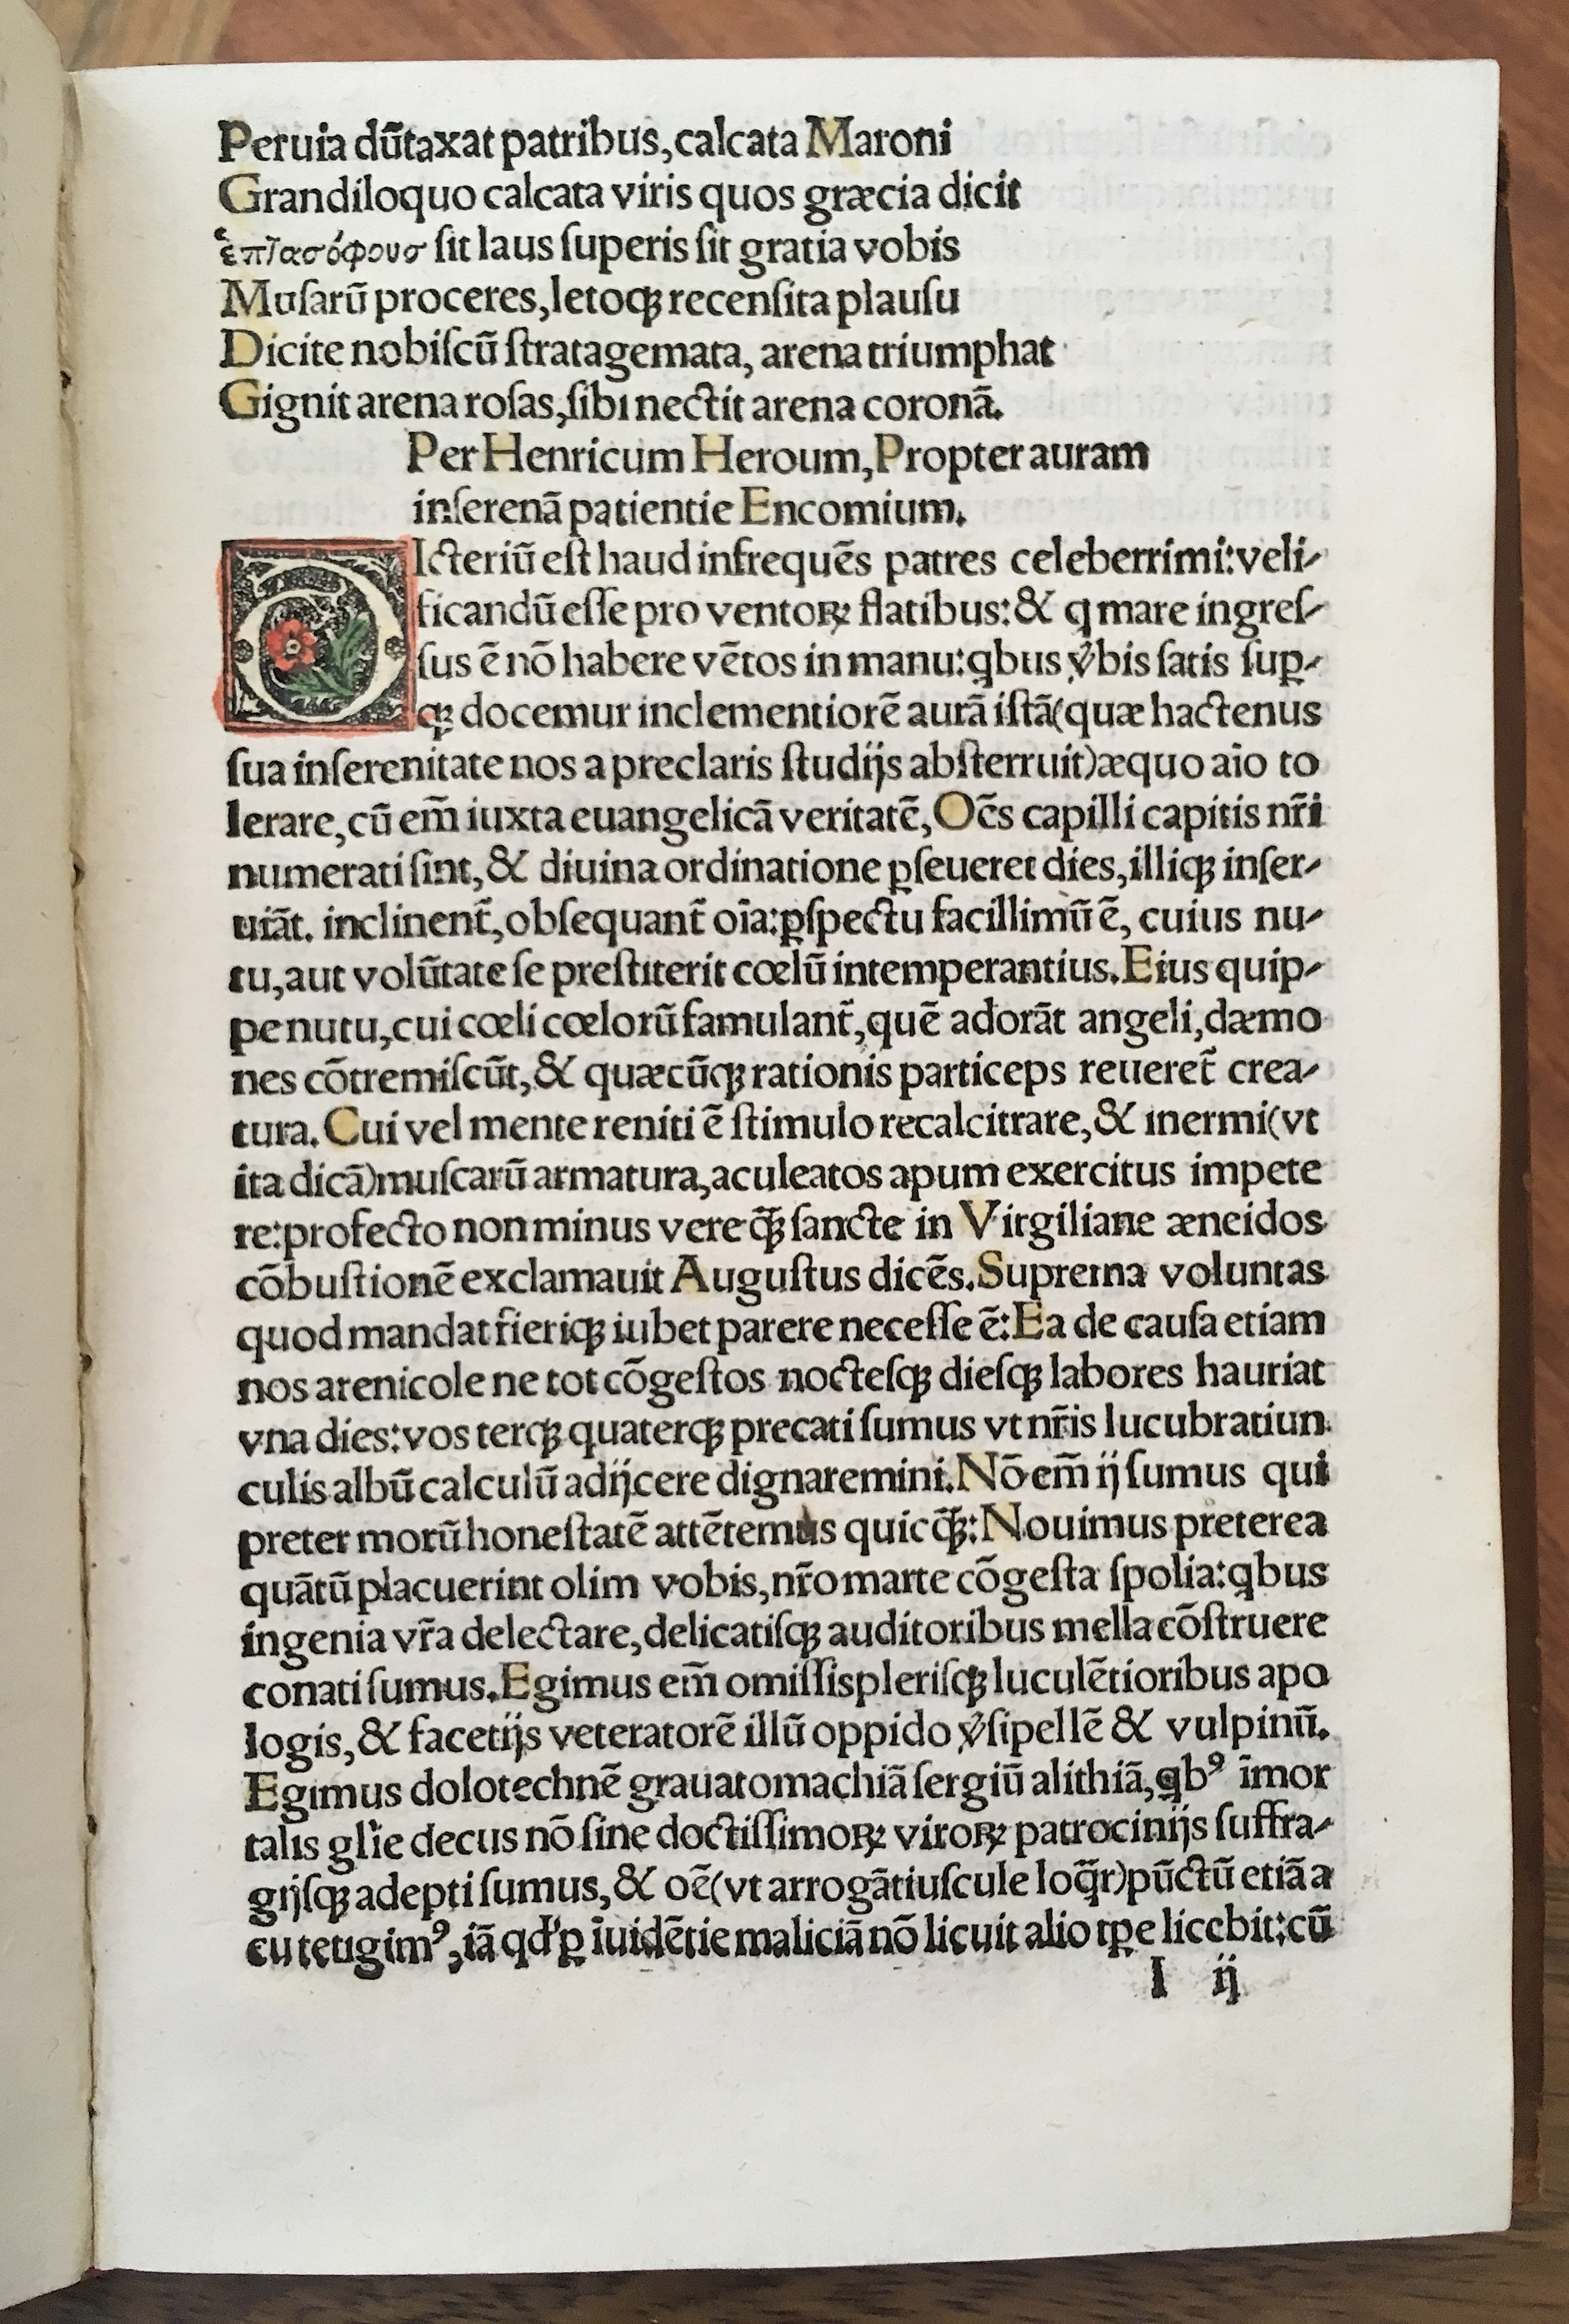 Peruia dũtaxat patribus, calcata Maroni
Grandiloquo calcata viris quos græcia dicit
ἐπῒασόφουσ ſit laus ſuperis ſit gratia vobis
Muſarũ proceres, letoqꝫ recenſita plauſu
Dicite nobiſcũ ſtratagemata, arena triumphat
Gignit arena roſas, ſibi nectit arena coronã.
Per Henricum Heroum, Propter auram
inſerenã patientie Encomium.
DIcteriũ eſt haud infrequẽs patres celeberrimi: veli⸗
ficandũ eſſe pro ventoꝝ flatibus: & ꝗ mare ingreſ⸗
ſus ẽ nõ habere vẽtos in manu: ꝗbus v̉bis ſatis ſuꝑ⸗
qꝫ docemur inclementiorẽ aurã iſtã (quæ hactenus
ſua inſerenitate nos a preclaris ſtudijs abſterruit) æquo aĩo to
lerare, cũ em̃ iuxta euangelicã veritatẽ, Oẽs capilli capitis nr̃i
numerati ſint, & diuina ordinatione ꝑſeueret dies, illiqꝫ inſer⸗
uiãt. inclinent̃, obſequant̃ oĩa: ꝑſpectu facillimũ ẽ, cuius nu⸗
tu, aut volũtate ſe preſtiterit cœlũ intemperantius. Eius quip⸗
pe nutu, cui cœli cœlorũ famulant̃, quẽ adorãt angeli, dæmo
nes cõtremiſcũt, & quæcũqꝫ rationis particeps reueret̃ crea⸗
tura. Cui vel mente reniti ẽ ſtimulo recalcitrare, & inermi (vt
ita dicã) muſcarũ armatura, aculeatos apum exercitus impete
re: profecto non minus vere q̃ꝫ ſancte in Virgiliane æneidos
cõbuſtionẽ exclamauit Auguſtus dicẽs. Suprema voluntas
quod mandat fieriqꝫ iubet parere neceſſe ẽ: Ea de cauſa etiam
nos arenicole ne tot cõgeſtos nocteſqꝫ dieſqꝫ labores hauriat
vna dies: vos terqꝫ quaterqꝫ precati ſumus vt nr̃is lucubratiun
culis albũ calculũ adijcere dignaremini. Nõ em̃ ij ſumus qui
preter morũ honeſtatẽ attẽtemus quicq̃ꝫ: Nouimus preterea
quãtũ placuerint olim vobis, nr̃o marte cõgeſta ſpolia: ꝗbus
ingenia vr̃a delectare, delicatiſqꝫ auditoribus mella cõſtruere
conati ſumus. Egimus em̃ omiſſis pleriſqꝫ luculẽtioribus apo
logis, & facetijs veteratorẽ illũ oppido v̉ſipellẽ & vulpinũ.
Egimus dolotechnẽ grauatomachiã ſergiũ alithiã, ꝗbꝰ ĩmor
talis gl̃ie decus nõ ſine doctiſſimoꝝ viroꝝ patrocinijs ſuffra⸗
gijſqꝫ adepti ſumus, & oẽ (vt arrogãtiuſcule loq̃r) pũctũ etiã a
cu tetigimꝰ, iã qd̉ ꝑ ĩuidẽtie maliciã nõ licuit alio tꝑe licebit: cũ
I ij